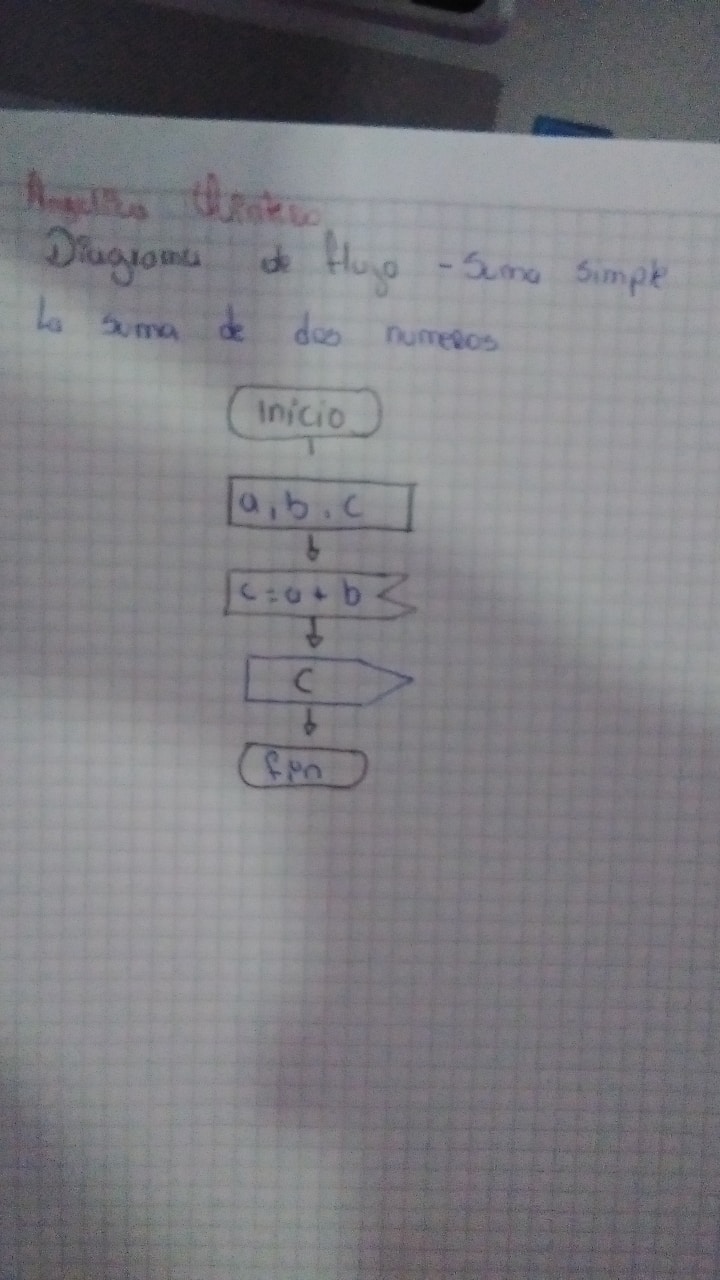 Diagrama de flujo - Suma simple
La suma de dos numeros
Inicio
a, b, c
c = a + b
c
fin